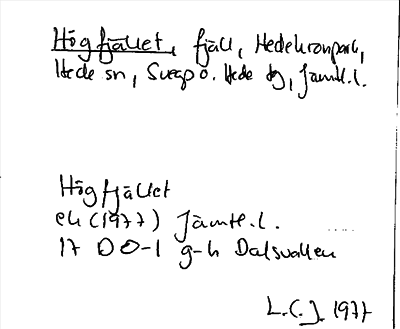 Högfjället, fjäll, Hedekronpark,
Hede sn, Svegs o. Hede tg, Jämtl.l.
Högfjället
ek (1977) Jämtl.l.
17 D 0-1 g-h Dalsvallen
L.C.J. 1977